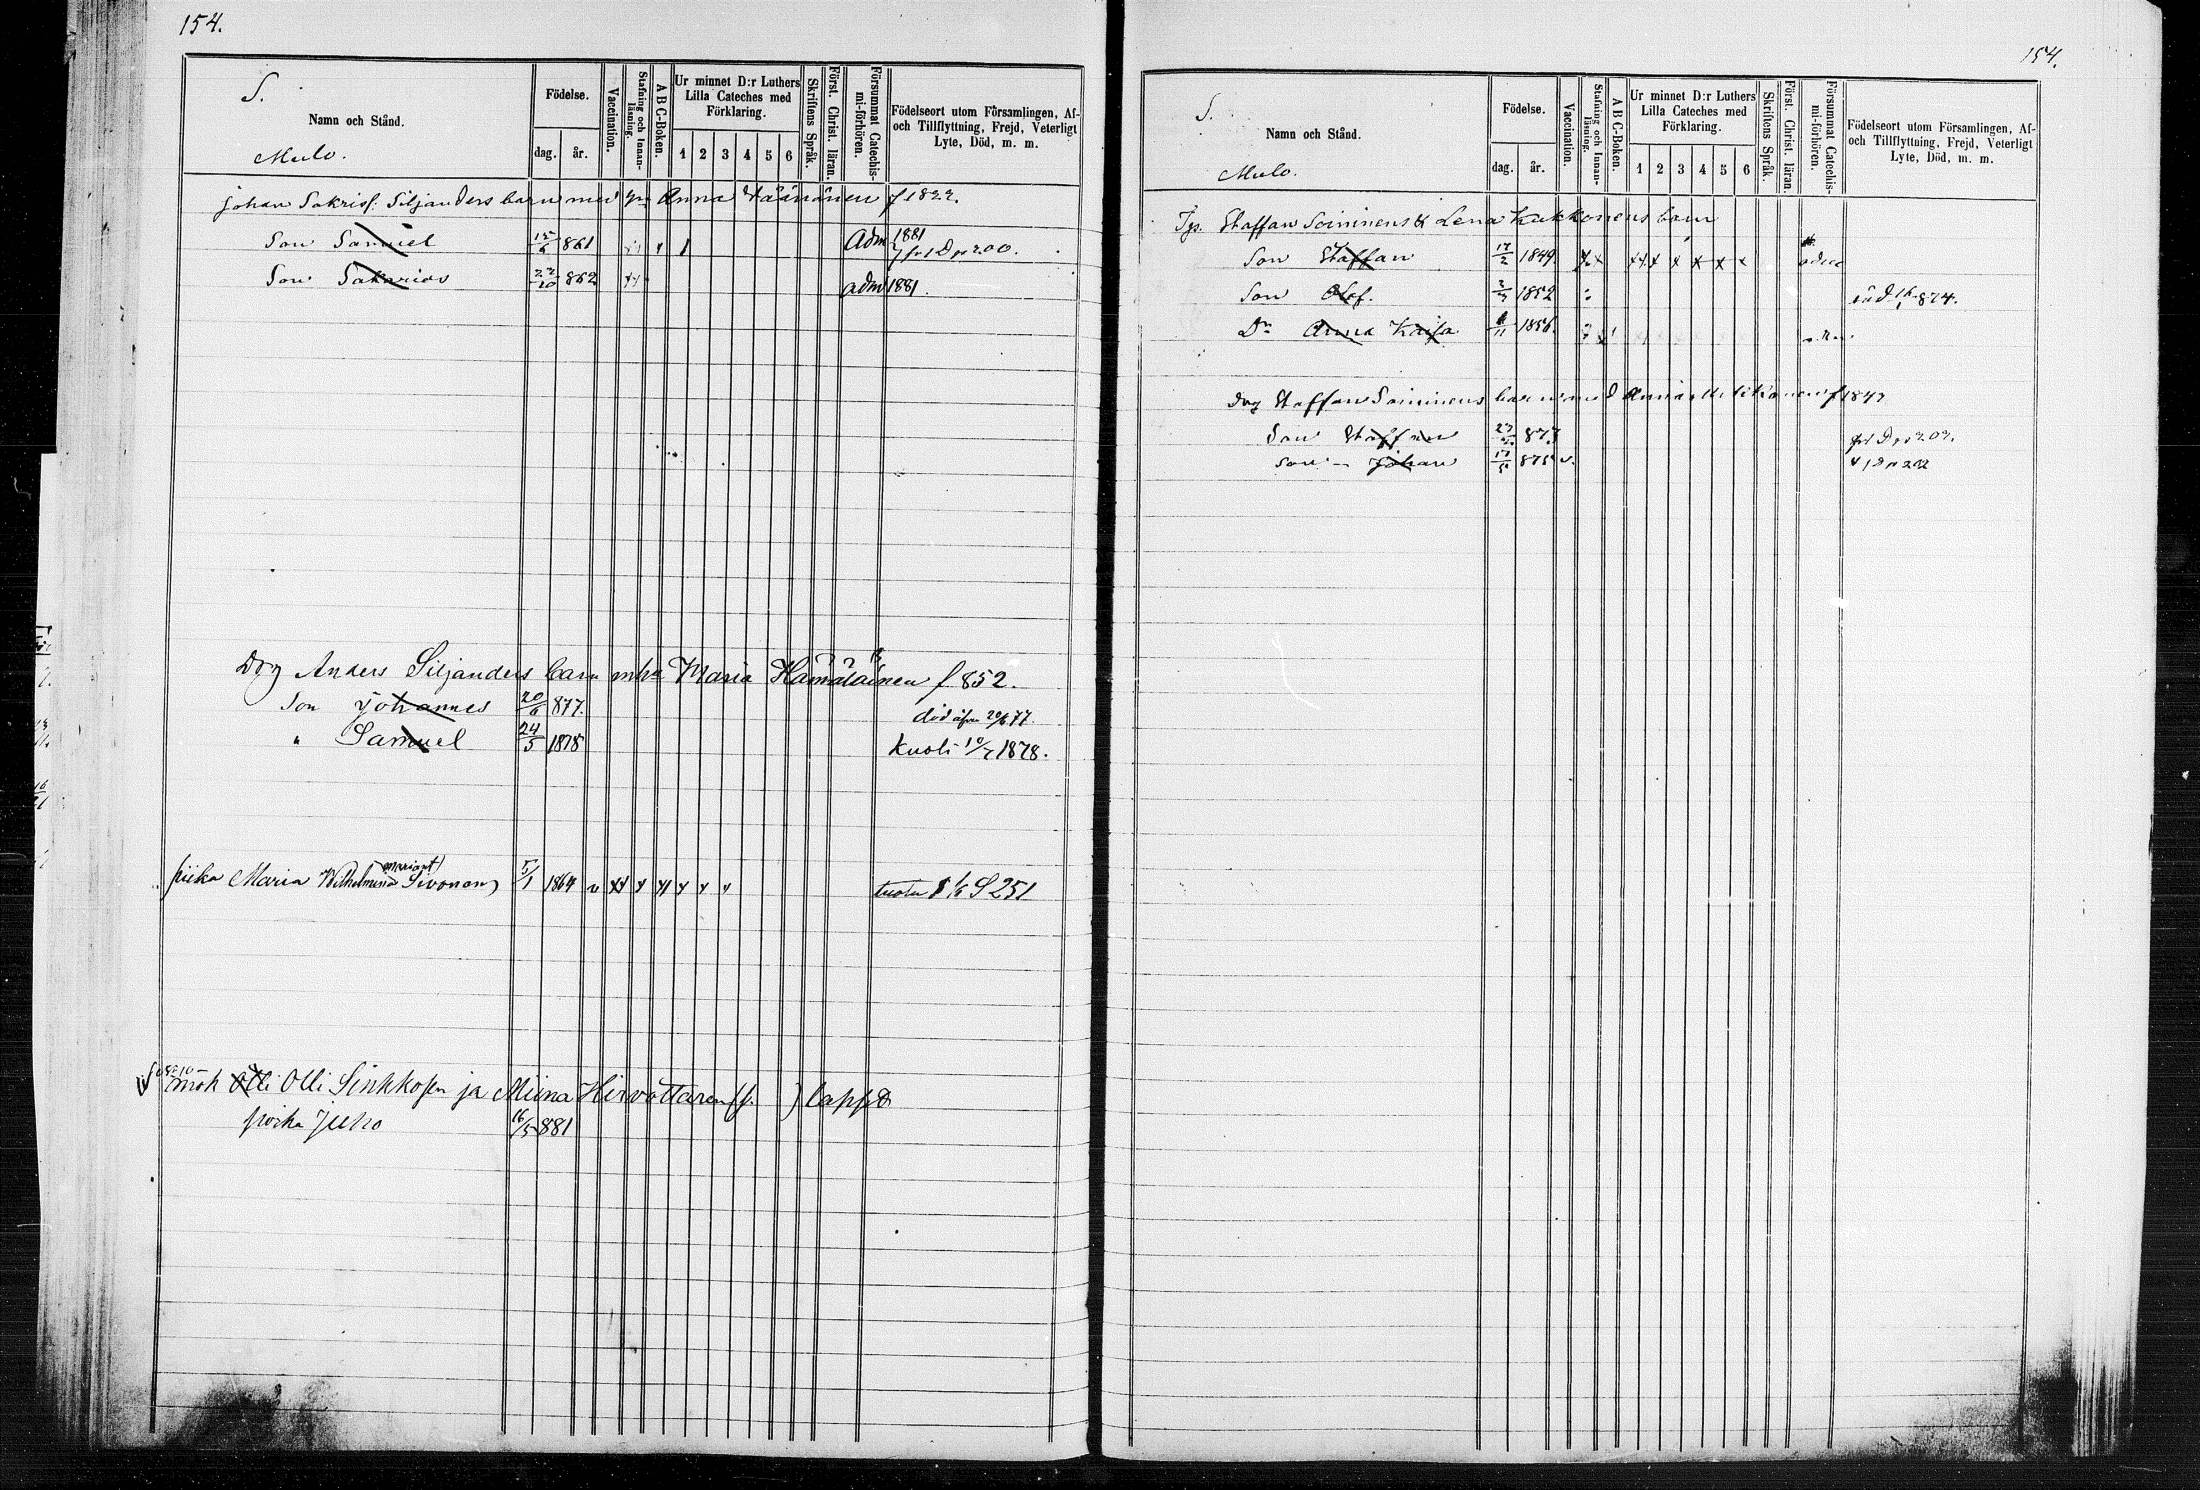 154.
S.
Namn och Stånd.
Mulo.
Födelse.
dag. år.
Vaccination.
Stafning och Innan-läsning.
A B C-Boken.
Ur minnet D:r Luthers
Lilla Cateches med
Förklaring.
1 2 3 4 5 6
Skriftens Språk.
Först. Christ. läran.
Försummat Catechis-mi-förhören.
Födelseort utom Församlingen, Af-
och Tillflyttning, Frejd, Veterligt
Lyte, Död, m. m.
Johan Sakrisf: Siljanders barn med Anna Väänänen f 1822.
Son Samuel 15/6 861 Adm 1881
Son Sakarias 22/10 862 adm 1881.
Drg Anders Siljanders barn mha Maria Hämäläinen f 852.
Son Johannes 20/6 877. död 20/6 77
" Samuel 24/5 1878 Kuoli 10/7 1878.
piika Maria Wilhelmina Sivonen 5/1 1864 v S 251
mök Olli Olli Sinkkosen ja Miina Hirvottaren lapset
poika Juho 16/5 881
154.
S.
Namn och Stånd.
Mulo.
Födelse.
dag. år.
Vaccination.
Stafning och Innan-läsning.
A B C-Boken.
Ur minnet D:r Luthers
Lilla Cateches med
Förklaring.
1 2 3 4 5 6
Skriftens Språk.
Först. Christ. läran.
Försummat Catechis-mi-förhören.
Födelseort utom Församlingen, Af-
och Tillflyttning, Frejd, Veterligt
Lyte, Död, m. m.
Staffan Soininens & Lena Kukkonens barn
Son Staffan 17/2 1849.
Son Olof. 1852 874.
Dr Anna Kaisa 6/11 1856.
Drg Staffan Soininens barn med Anna f 184
Son Staffan 23 87
Son Johan 17 875 v.